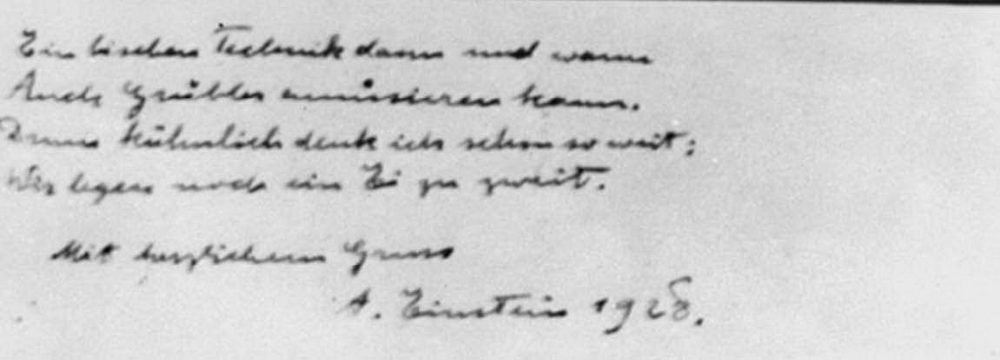 Ein bischen Technik dann und wann
Auch Grübler amüsieren kann.
Drum kühnlich denk ich schon so weit:
Wir legen noch ein Ei zu zweit.
Mit herzlichem Gruss
A. Einstein 1928.